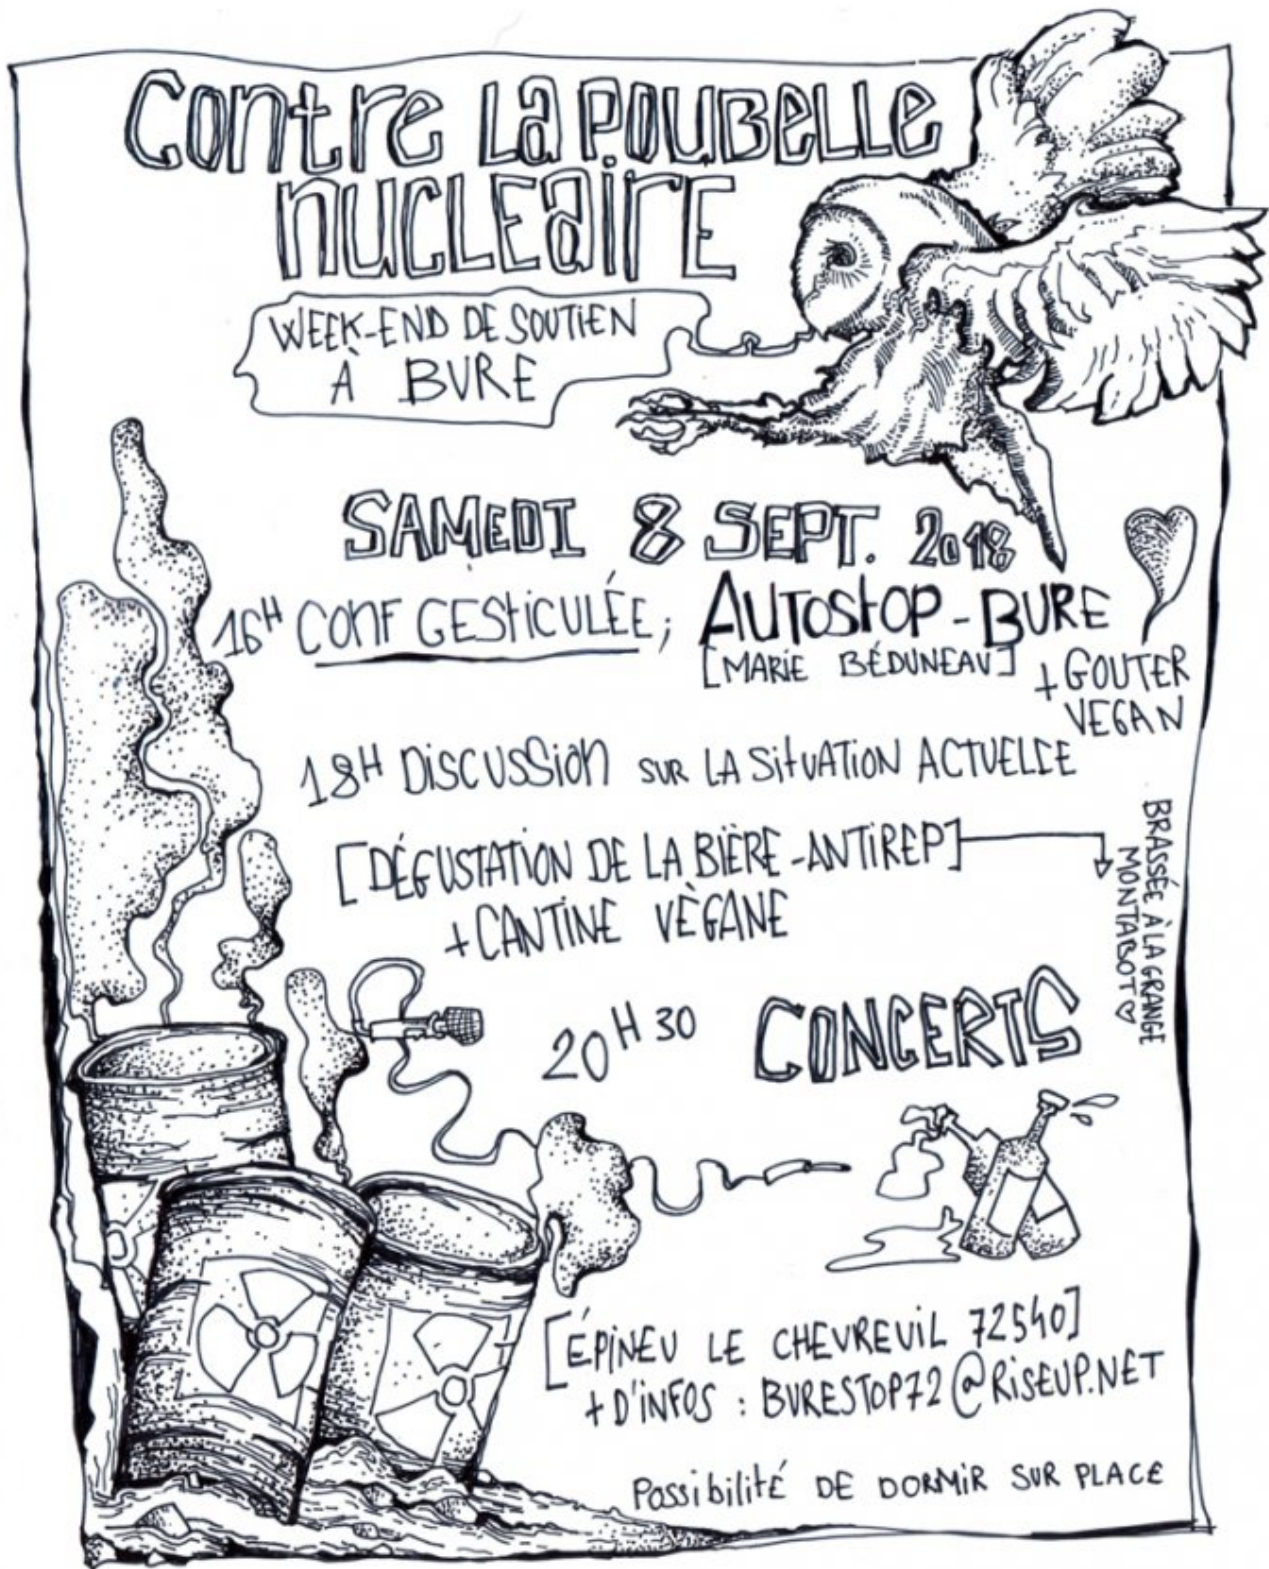 Contre La POUBELLE
nucLEaire
WEEK-END DE SOUTIEN
À BURE
SAMEDI 8 SEPT. 2018
16H CONF GESTICULÉE; AUTOSTOP-BURE
[MARIE BÉDUNEAU]
+ GOUTER
VEGAN
18H DISCUSSION SUR LA SITUATION ACTUELLE
[DÉGUSTATION DE LA BIÈRE-ANTIREP]
+ CANTINE VÈGANE
BRASSÉE À LA GRANGE
MONTABOT ♡
20H30 CONCERTS
[ÉPINEU LE CHEVREUIL 72540]
+ D'INFOS : BURESTOP72@RISEUP.NET
Possibilité DE DORMIR SUR PLACE